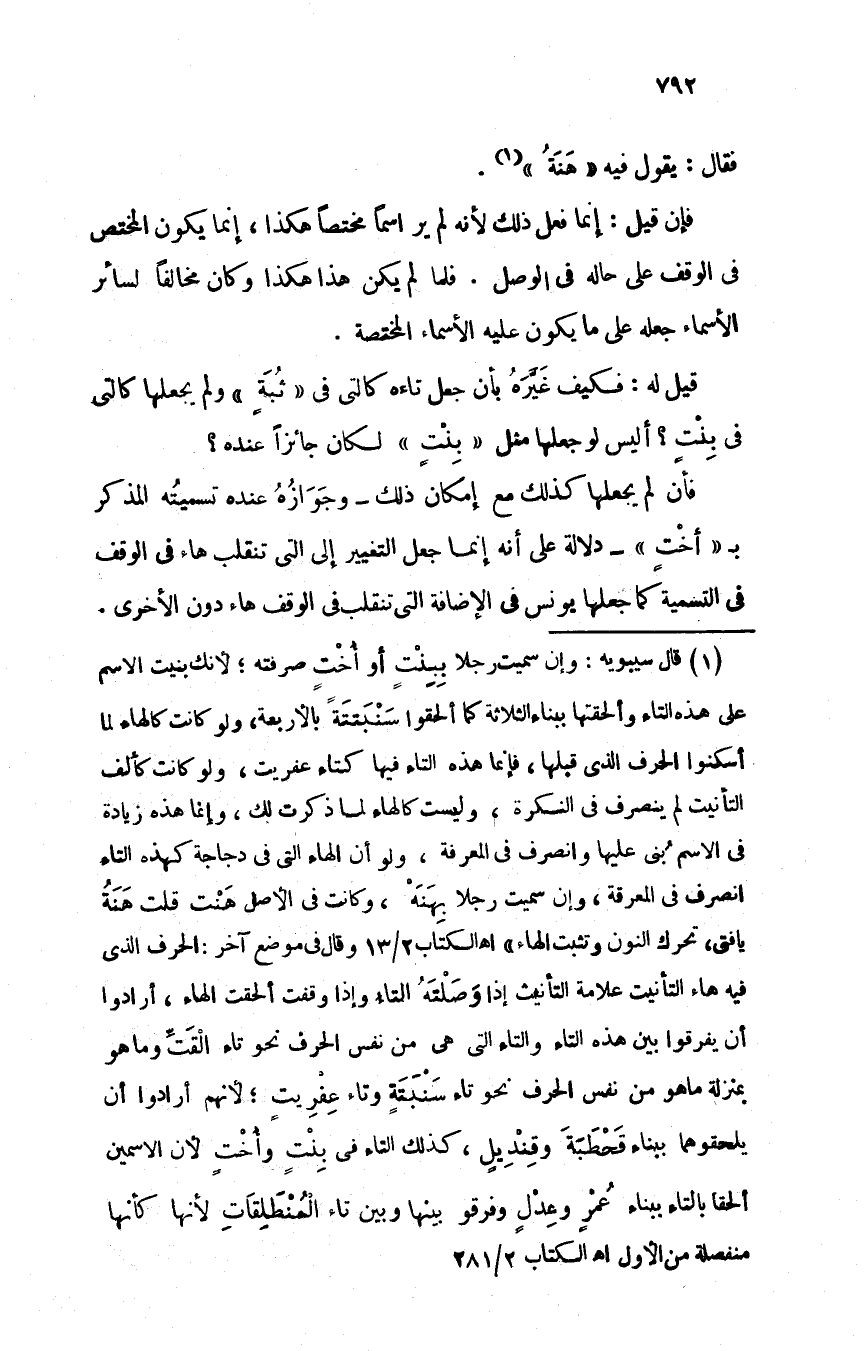 ٧٩٢
فقال : يقول فيه « هَنَةُ »(١) .
فإن قيل : إنما فعل ذلك لأنه لم ير اسماً مختصاً هكذا ، إنما يكون المختص
فى الوقف على حاله فى الوصل . فلما لم يكن هذا هكذا وكان مخالفاً لسائر
الأسماء جعله على ما يكون عليه الأسماء المختصة .
قيل له : فكيف غَيَّرَهُ بأن جعل تاءه كالتى فى « ثُبَةٍ » ولم يجعلها كالتى
فى بِنْتٍ ؟ أليس لو جعلها مثل « بِنْتٍ » لكان جائزاً عنده ؟
فأن لم يجعلها كذلك مع إمكان ذلك ـ وجَوَازُهُ عنده تسميتُه المذكر
بـ « أخْتٍ » ـ دلالة على أنه إنما جعل التغيير إلى التى تنقلب هاء فى الوقف
فى التسمية كما جعلها يونس فى الإضافة التى تنقلب فى الوقف هاء دون الأخرى .
(١) قال سيبويه : وإن سميت رجلا بِبِنْتٍ أو أُخْتٍ صرفته ؛ لأنك بنيت الاسم
على هذه التاء وألحقتها ببناء الثلاثة كما ألحقوا سَنْبَتَةً بالأربعة، ولو كانت كالهاء لما
أسكنوا الحرف الذى قبلها ، فإنما هذه التاء فيها كتاء عفريت ، ولو كانت كألف
التأنيت لم ينصرف فى النكرة ، وليست كالهاء لما ذكرت لك ، وإنما هذه زيادة
فى الاسم بُنى عليها وانصرف فى المعرفة ، ولو أن الهاء التى فى دجاجة كهذه التاء
انصرف فى المعرقة ، وإن سميت رجلا بِهَنَهْ ، وكانت فى الأصل هَنْت قلت هَنَةُ
يافتى، تحرك النون وتثبت الهاء » اه الكتاب ١٣/٢ وقال فى موضع آخر : الحرف الذى
فيه هاء التأنيت علامة التأنيث إذا وَصَلْتَهُ التاء وإذا وقفت ألحقت الهاء ، أرادوا
أن يفرقوا بين هذه التاء والتاء التى هى من نفس الحرف نحو تاء الْقَتِّ وماهو
بمنزلة ماهو من نفس الحرف نحو تاء سَنْبَتَةٍ وتاء عِفْرِيتٍ ؛ لأنهم أرادوا أن
يلحقوهما ببناء قَحْطَبَةَ وقِنْدِيلٍ ، كذلك التاء فى بِنْتٍ وأُخْتٍ لأن الاسمين
ألحقا بالتاء ببناء عُمْرٍ وعِدْلٍ وفرقو بينها وبين تاء الْمُنْطَلِقَاتِ لأنها كأنها
منفصلة من الأول اه الكتاب ٢٨١/٢